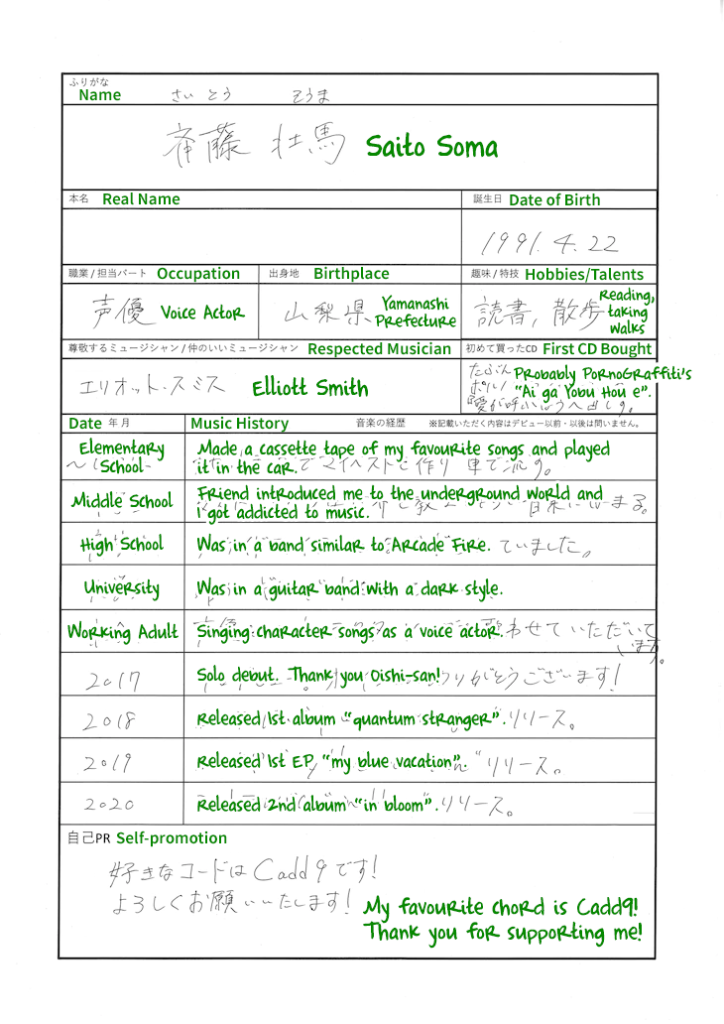 ふりがな
Name さいとう そうま
斉藤 壮馬 Saito Soma
本名 Real Name
誕生日 Date of Birth
1991. 4. 22
職業/担当パート Occupation
出身地 Birthplace
趣味/特技 Hobbies/Talents
声優 Voice Actor
山梨県 Yamanashi
Prefecture
読書, 散歩 Reading,
taking
walks
尊敬するミュージシャン/仲のいいミュージシャン Respected Musician
初めて買ったCD First CD Bought
エリオット・スミス Elliott Smith
たぶん Probably PornoGraffiti's
ポルノ "Ai ga Yobu Hou e".
Date 年 月
Music History 音楽の経歴 ※記載いただく内容はデビュー以前・以後は問いません。
Elementary
School
Made a cassette tape of my favourite songs and played
it in the car. で マイベスト 作り 車で流す。
Middle School
Friend introduced me to the underground world and
i got addicted to music. まる。
High School
Was in a band similar to Arcade Fire. ていました。
University
Was in a guitar band with a dark style.
Working Adult
Singing character songs as a voice actor. わせていただいて
います。
2017
Solo debut. Thank you Oishi-san! りがとうございます!
2018
Released 1st album "quantum stranger". リリース。
2019
Released 1st EP, "my blue vacation". リリース。
2020
Released 2nd album "in bloom". リリース。
自己PR Self-promotion
好きなコードはCadd9です!
よろしくお願いいたします!
My favourite chord is Cadd9!
Thank you for supporting me!